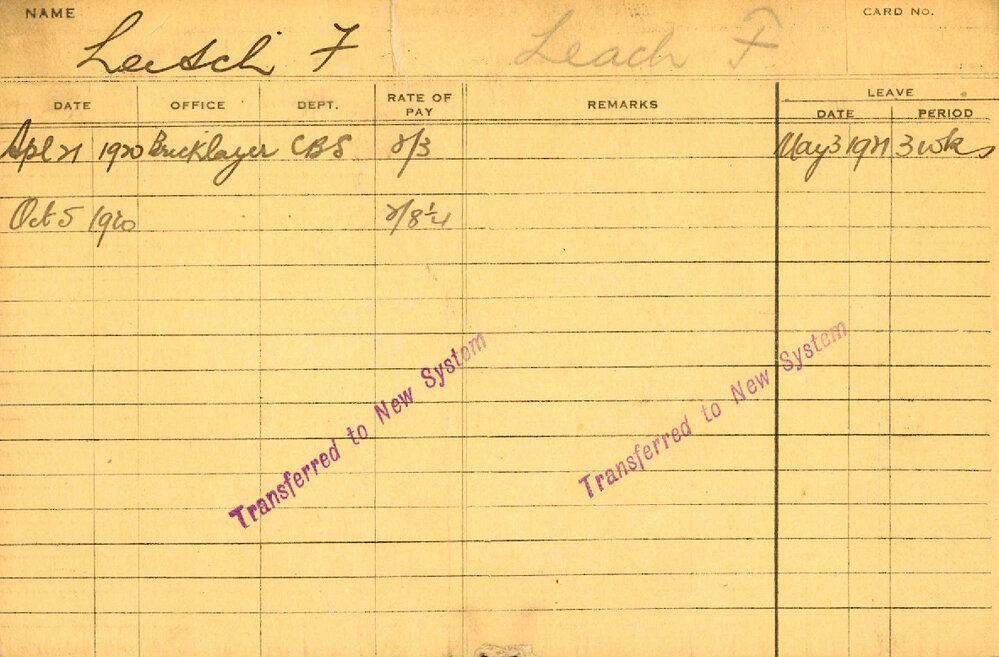 NAME CARD No.
Leisch F Leach F
LEAVE
DATE OFFICE DEPT. RATE OF PAY REMARKS DATE PERIOD
Apl 21 1920 Bricklayer CBS 2/3 May 3 1921 3 wks
Oct 5 1920 2/8¼
Transferred to New System
Transferred to New System